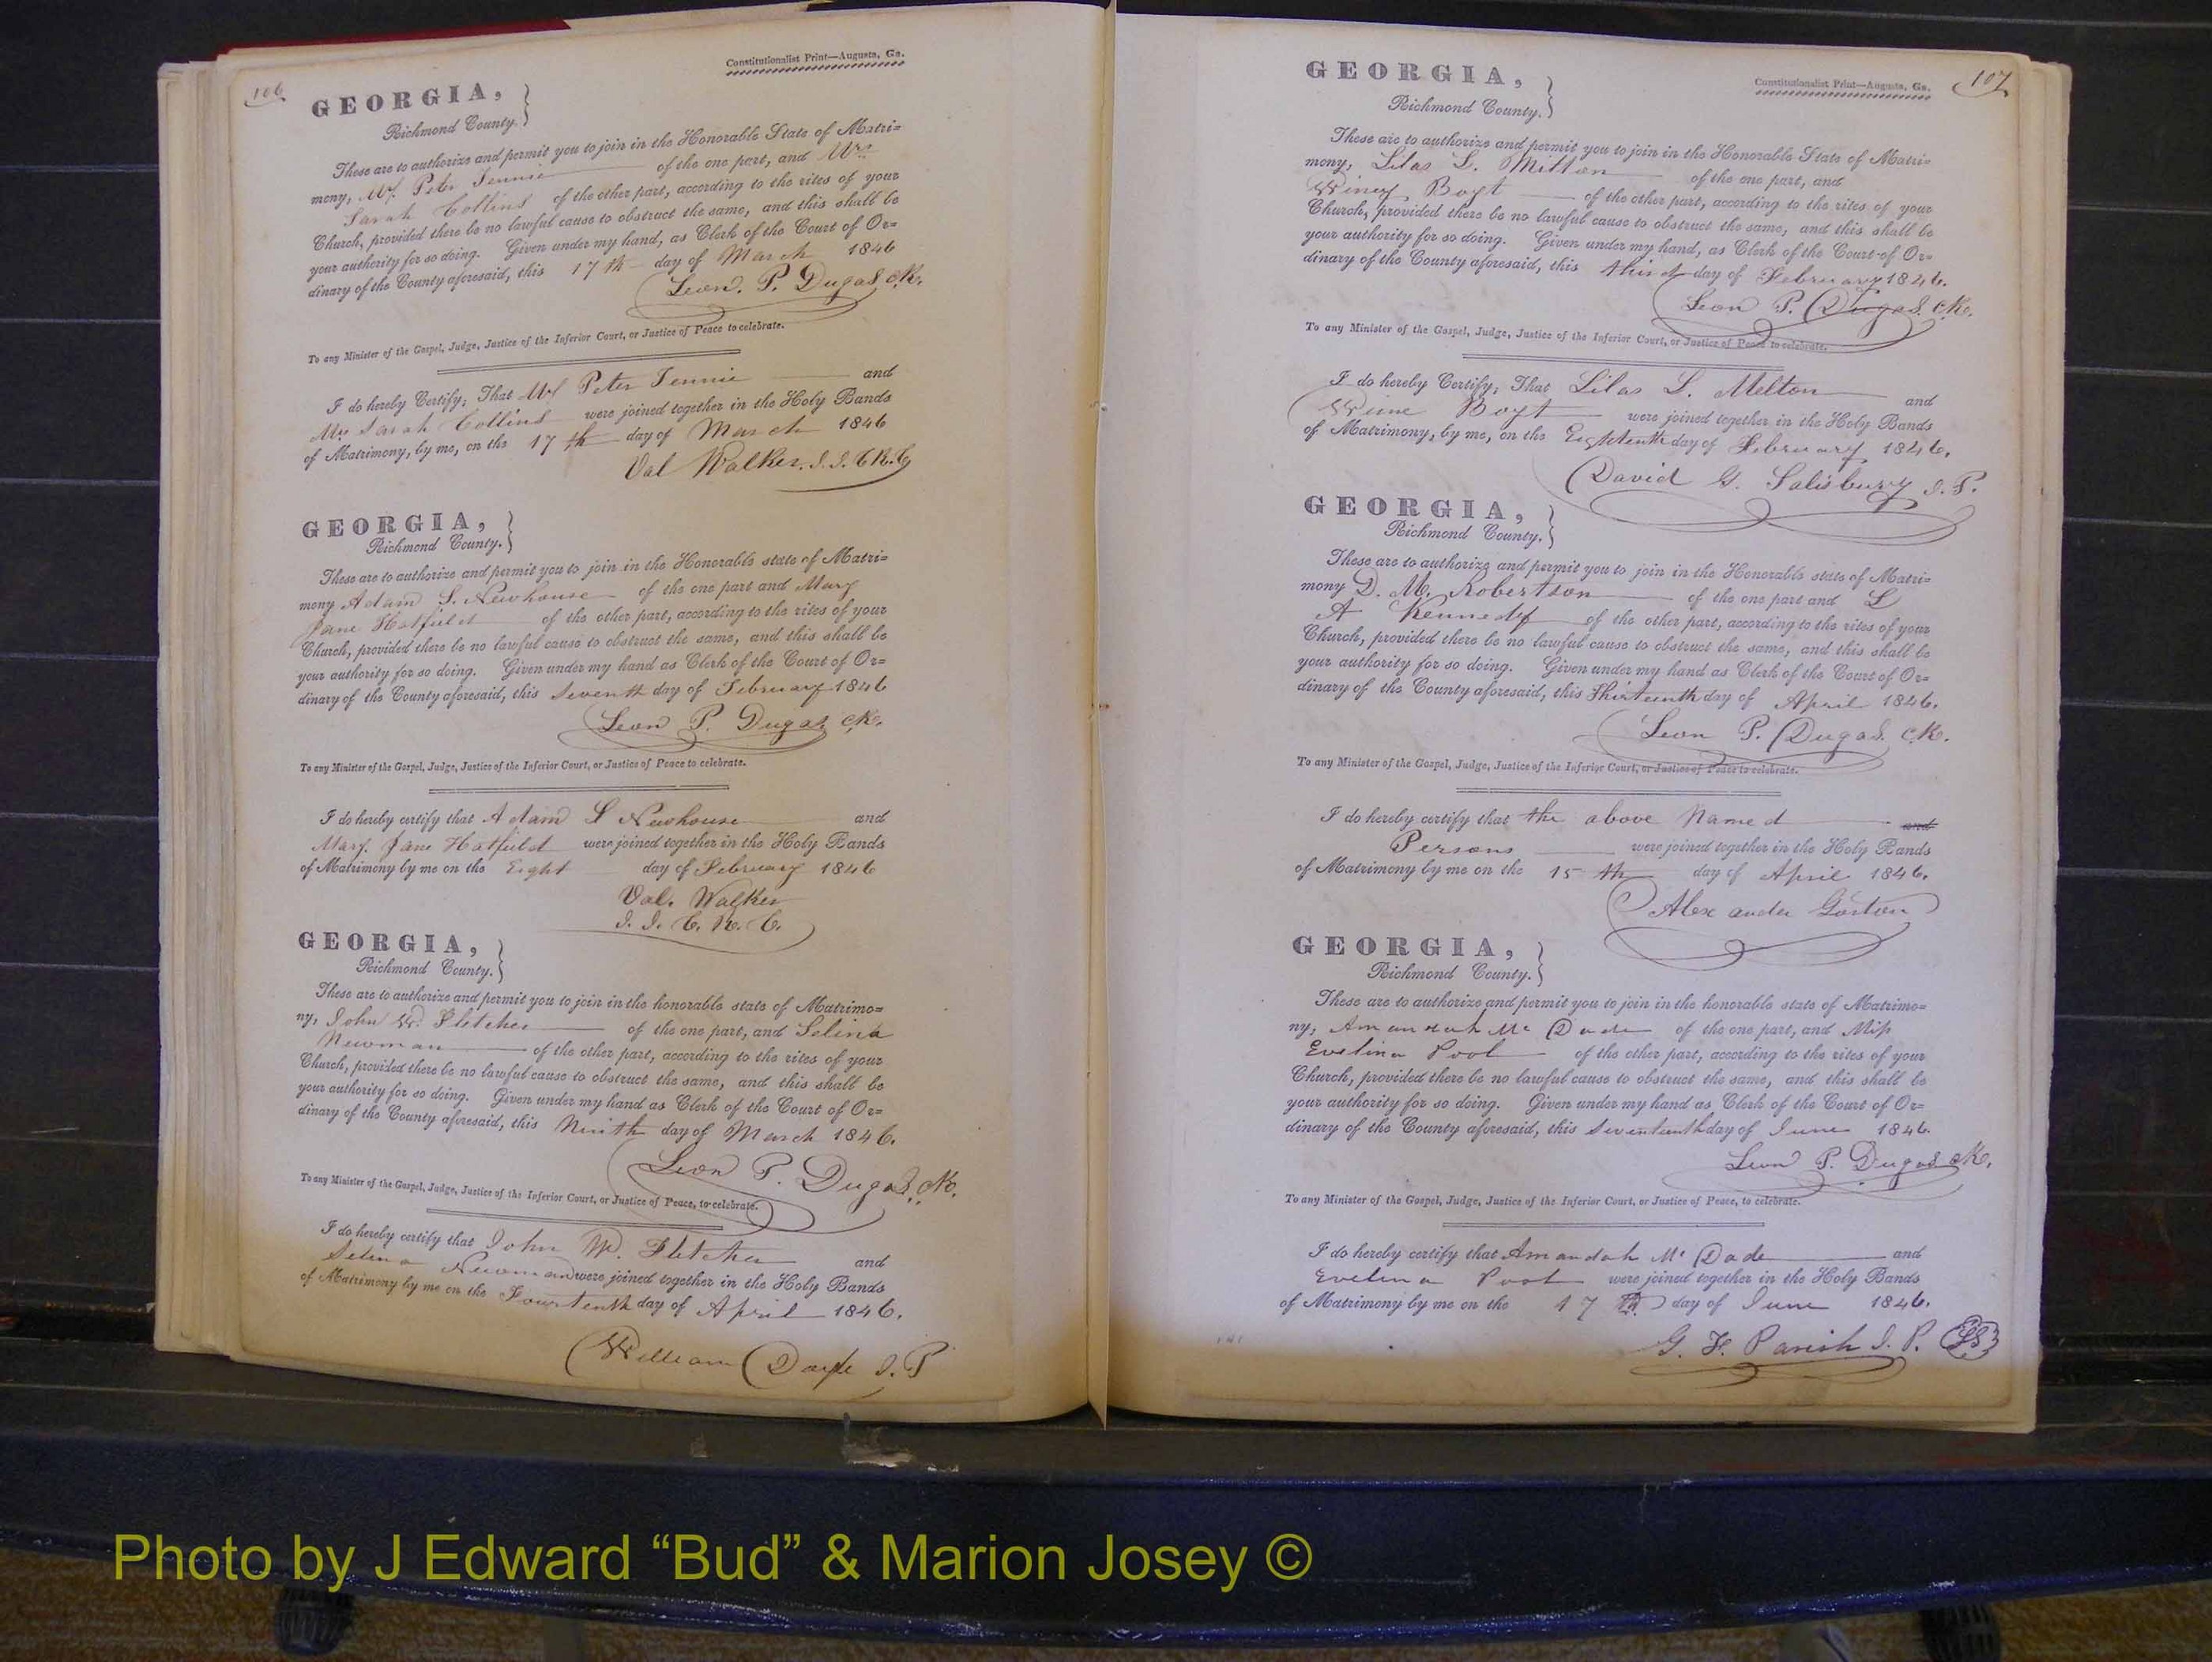 106
Constitutionalist Print—Augusta, Ga.
GEORGIA,
Richmond County.
These are to authorize and permit you to join in the Honorable State of Matri=
mony, Mr. Peter Jennie of the one part, and Mrs
Sarah Collins of the other part, according to the rites of your
Church, provided there be no lawful cause to obstruct the same, and this shall be
your authority for so doing. Given under my hand, as Clerk of the Court of Or=
dinary of the County aforesaid, this 17th day of March 1846
Leon. P. Dugas, Ck.
To any Minister of the Gospel, Judge, Justice of the Inferior Court, or Justice of Peace to celebrate.
I do hereby Certify; That Mr Peter Jennie and
Mrs Sarah Collins were joined together in the Holy Bands
of Matrimony, by me, on the 17th day of March 1846
Val Walker. J. I. C R. C
GEORGIA,
Richmond County.
These are to authorize and permit you to join in the Honorable state of Matri=
mony Adam S. Newhouse of the one part and Mary
Jane Hatfield of the other part, according to the rites of your
Church, provided there be no lawful cause to obstruct the same, and this shall be
your authority for so doing. Given under my hand as Clerk of the Court of Or=
dinary of the County aforesaid, this Seventh day of February 1846
Leon P. Dugas, Ck.
To any Minister of the Gospel, Judge, Justice of the Inferior Court, or Justice of Peace to celebrate.
I do hereby certify that Adam S Newhouse and
Mary Jane Hatfield were joined together in the Holy Bands
of Matrimony by me on the Eight day of February 1846
Val. Walker
J. I. C. R. C.
GEORGIA,
Richmond County.
These are to authorize and permit you to join in the honorable state of Matrimo=
ny, John W. Fletcher of the one part, and Selina
Newman of the other part, according to the rites of your
Church, provided there be no lawful cause to obstruct the same, and this shall be
your authority for so doing. Given under my hand as Clerk of the Court of Or=
dinary of the County aforesaid, this Ninth day of March 1846.
Leon P. Dugas, Ck.
To any Minister of the Gospel, Judge, Justice of the Inferior Court, or Justice of Peace, to celebrate.
I do hereby certify that John W. Fletcher and
Selina Newman were joined together in the Holy Bands
of Matrimony by me on the Fourteenth day of April 1846.
William Doyle J. P
107
Constitutionalist Print—Augusta, Ga.
GEORGIA,
Richmond County.
These are to authorize and permit you to join in the Honorable State of Matri=
mony, Silas L. Milton of the one part, and
Winey Boyt of the other part, according to the rites of your
Church, provided there be no lawful cause to obstruct the same, and this shall be
your authority for so doing. Given under my hand, as Clerk of the Court of Or=
dinary of the County aforesaid, this third day of February 1846.
Leon P. Dugas. Ck.
To any Minister of the Gospel, Judge, Justice of the Inferior Court, or Justice of Peace to celebrate.
I do hereby Certify; That Silas L. Melton and
Wine Boyt were joined together in the Holy Bands
of Matrimony, by me, on the Eighteenth day of February 1846.
David G. Salisbury J. P.
GEORGIA,
Richmond County.
These are to authorize and permit you to join in the Honorable state of Matri=
mony D. M. Robertson of the one part and L
A Kennedy of the other part, according to the rites of your
Church, provided there be no lawful cause to obstruct the same, and this shall be
your authority for so doing. Given under my hand as Clerk of the Court of Or=
dinary of the County aforesaid, this Thirteenth day of April 1846.
Leon P. Dugas. Ck.
To any Minister of the Gospel, Judge, Justice of the Inferior Court, or Justice of Peace to celebrate.
I do hereby certify that the above Named and
Persons were joined together in the Holy Bands
of Matrimony by me on the 15th day of April 1846.
Alexander
GEORGIA,
Richmond County.
These are to authorize and permit you to join in the honorable state of Matrimo=
ny, Amandah Mc Dade of the one part, and Miss
Evelina Pool of the other part, according to the rites of your
Church, provided there be no lawful cause to obstruct the same, and this shall be
your authority for so doing. Given under my hand as Clerk of the Court of Or=
dinary of the County aforesaid, this Seventeenth day of June 1846.
Leon P. Dugas Ck.
To any Minister of the Gospel, Judge, Justice of the Inferior Court, or Justice of Peace, to celebrate.
I do hereby certify that Amandah Mc Dade and
Evelina Pool were joined together in the Holy Bands
of Matrimony by me on the 17th day of June 1846.
G. F. Parish J. P. LS
Photo by J Edward “Bud” & Marion Josey ©